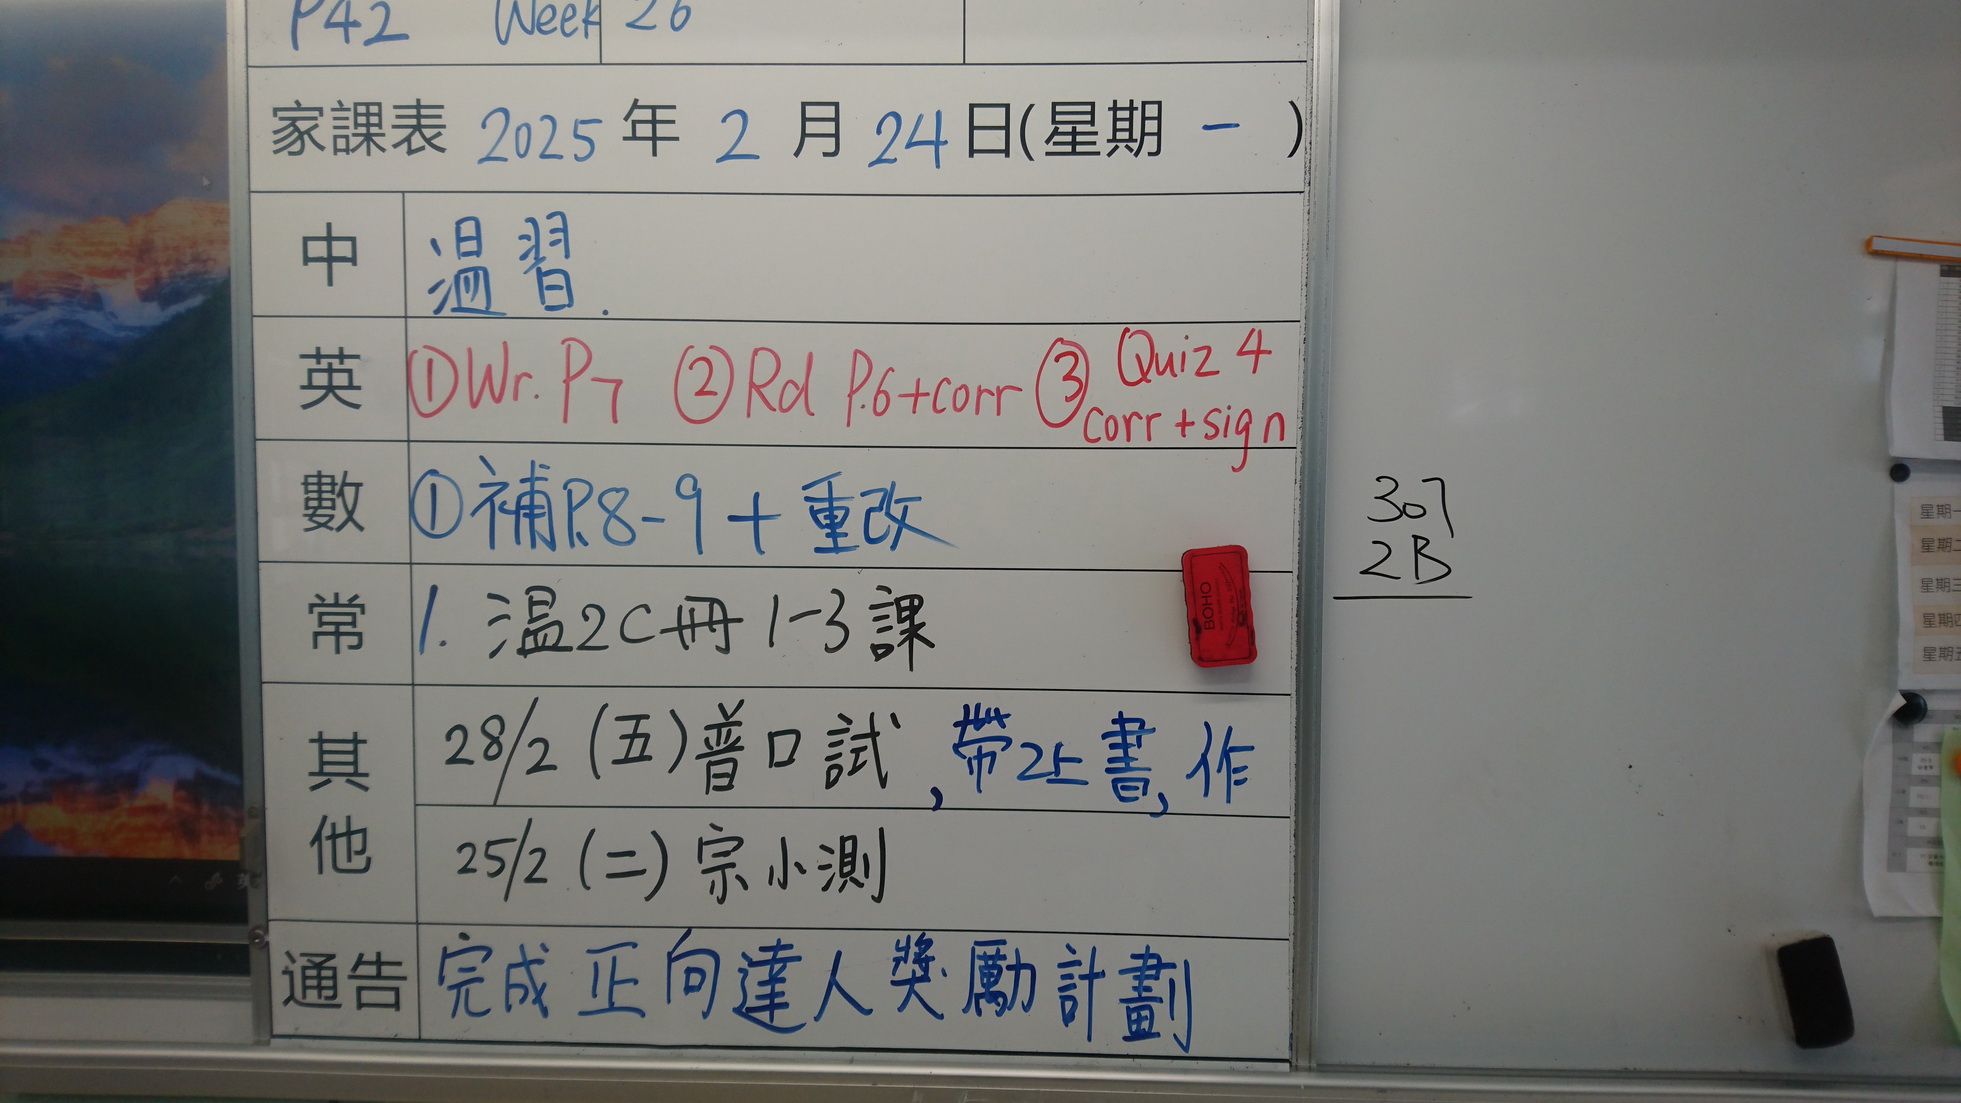 P42 Week 26
家課表 2025 年 2 月 24 日(星期 一 )
中 温習.
英 ①Wr. P7 ②Rd P.6+corr ③ Quiz 4
corr+sign
數 ①補P.8-9+重改
常 1. 温2C冊 1-3課
其他 28/2 (五)普口試,帶2上書,作
25/2 (二)宗小測
通告 完成正向達人獎勵計劃
307
2B
BOHO
星期一
星期二
星期三
星期四
星期五